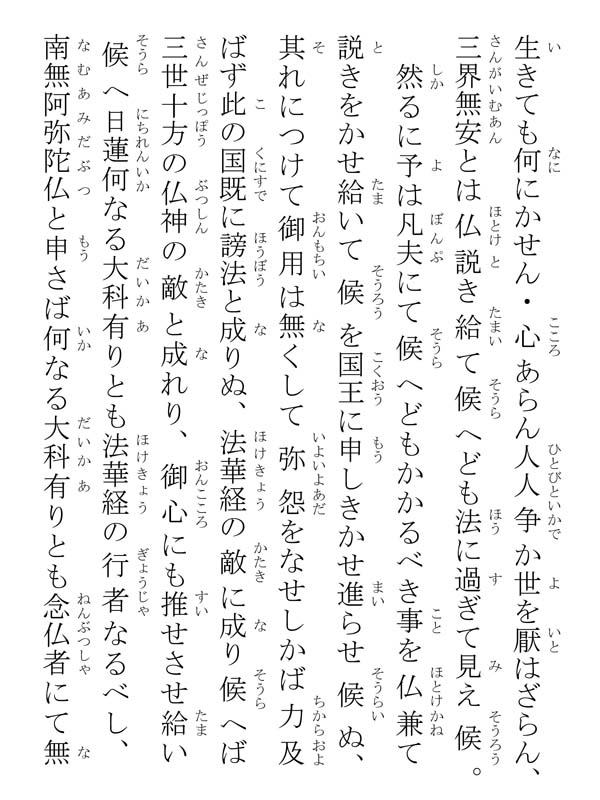 生きても何にかせん・心あらん人人争か世を厭はざらん、
三界無安とは仏説き給て候へども法に過ぎて見え候。
然るに予は凡夫にて候へどもかかるべき事を仏兼て
説きをかせ給いて候を国王に申しきかせ進らせ候ぬ、
其れにつけて御用は無くして弥怨をなせしかば力及
ばず此の国既に謗法と成りぬ、法華経の敵に成り候へば
三世十方の仏神の敵と成れり、御心にも推せさせ給い
候へ日蓮何なる大科有りとも法華経の行者なるべし、
南無阿弥陀仏と申さば何なる大科有りとも念仏者にて無